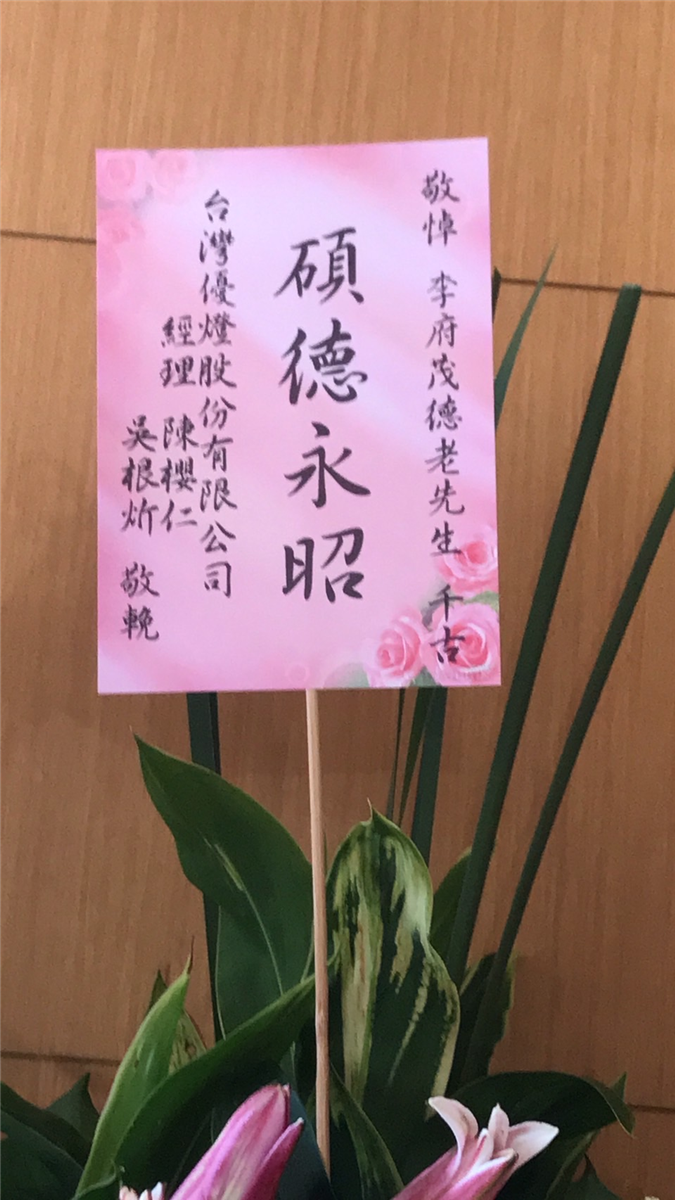 敬悼 李府茂德老先生 千古
碩德永昭
台灣優燈股份有限公司
經理 陳櫻仁
吳根炘 敬輓